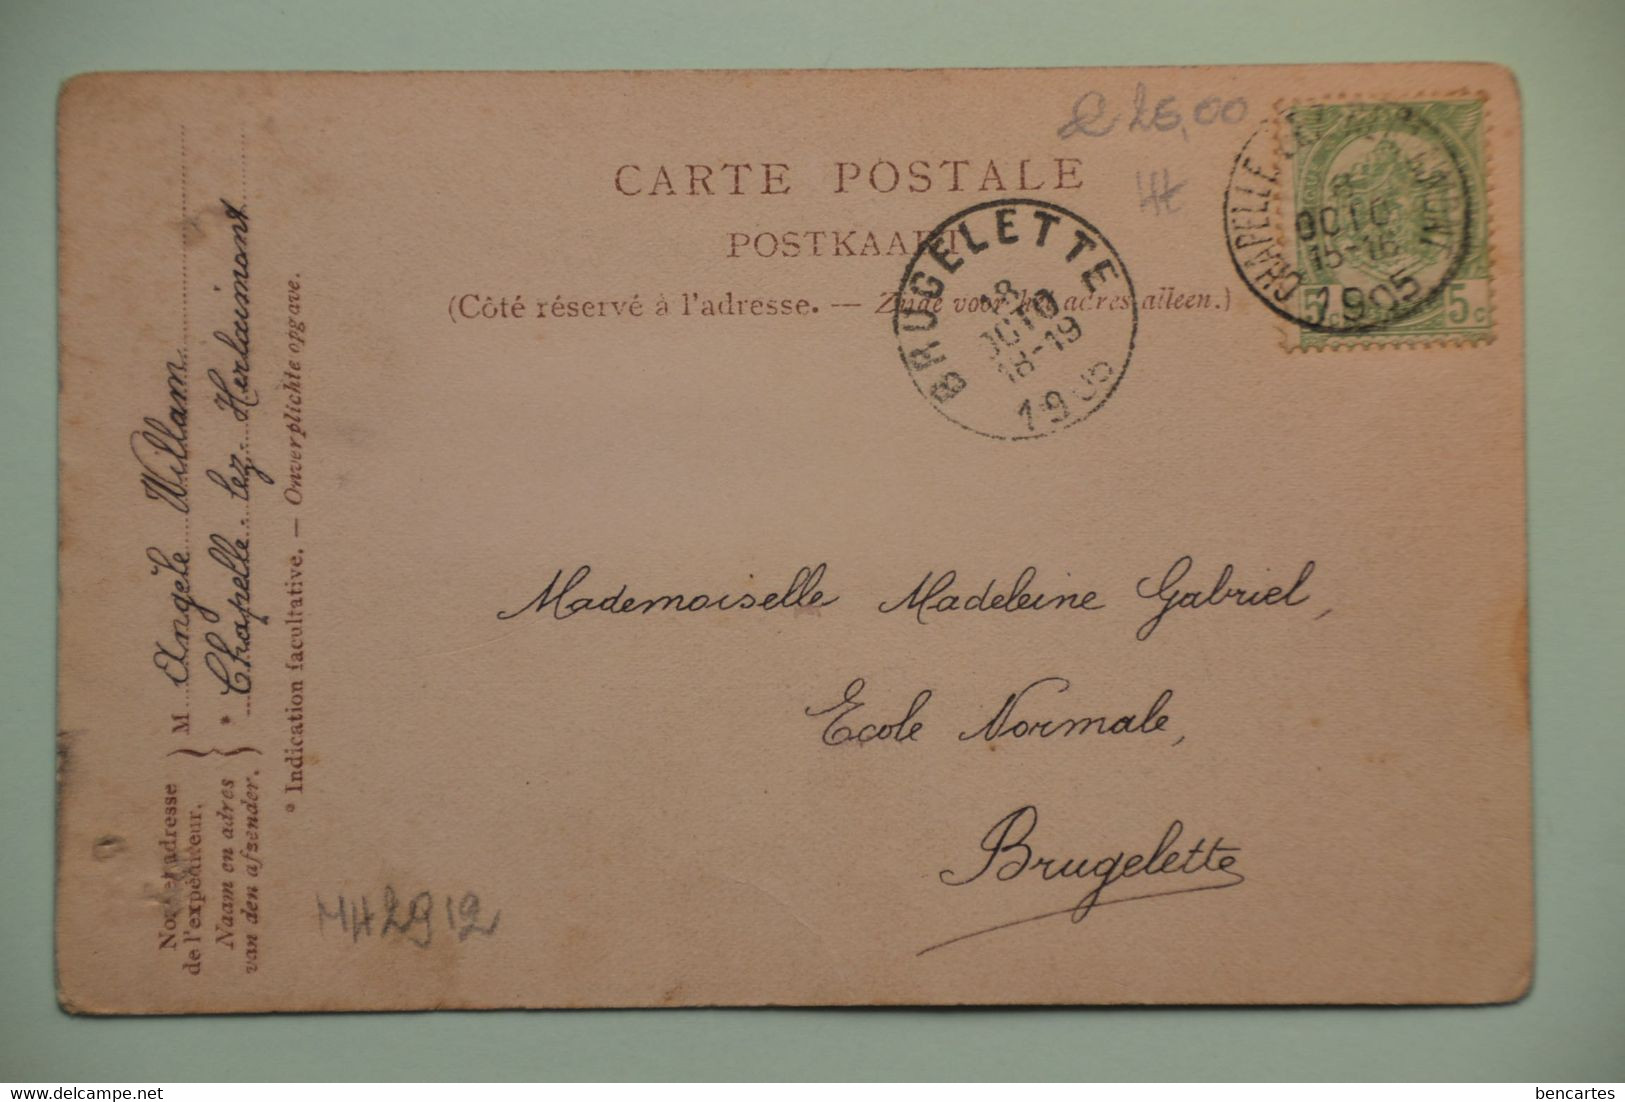 £ 25,00
CARTE POSTALE
Ht
POSTKAART
(Côté réservé à l'adresse. — Zijde voor het adres alleen.)
CHAPELLE
OCTO
15-16
1905
5c 5c
BRUGELETTE
18
OCTO
18-19
1905
Nom et adresse
de l'expéditeur.
Naam en adres
van den afsender.
M Angèle Willam
* Chapelle-lez-Herlaimont
* Indication facultative. — Onverplichte opgave.
Mademoiselle Madeleine Gabriel,
Ecole Normale,
Brugelette
MH2912
Delcampe.net
bencartes